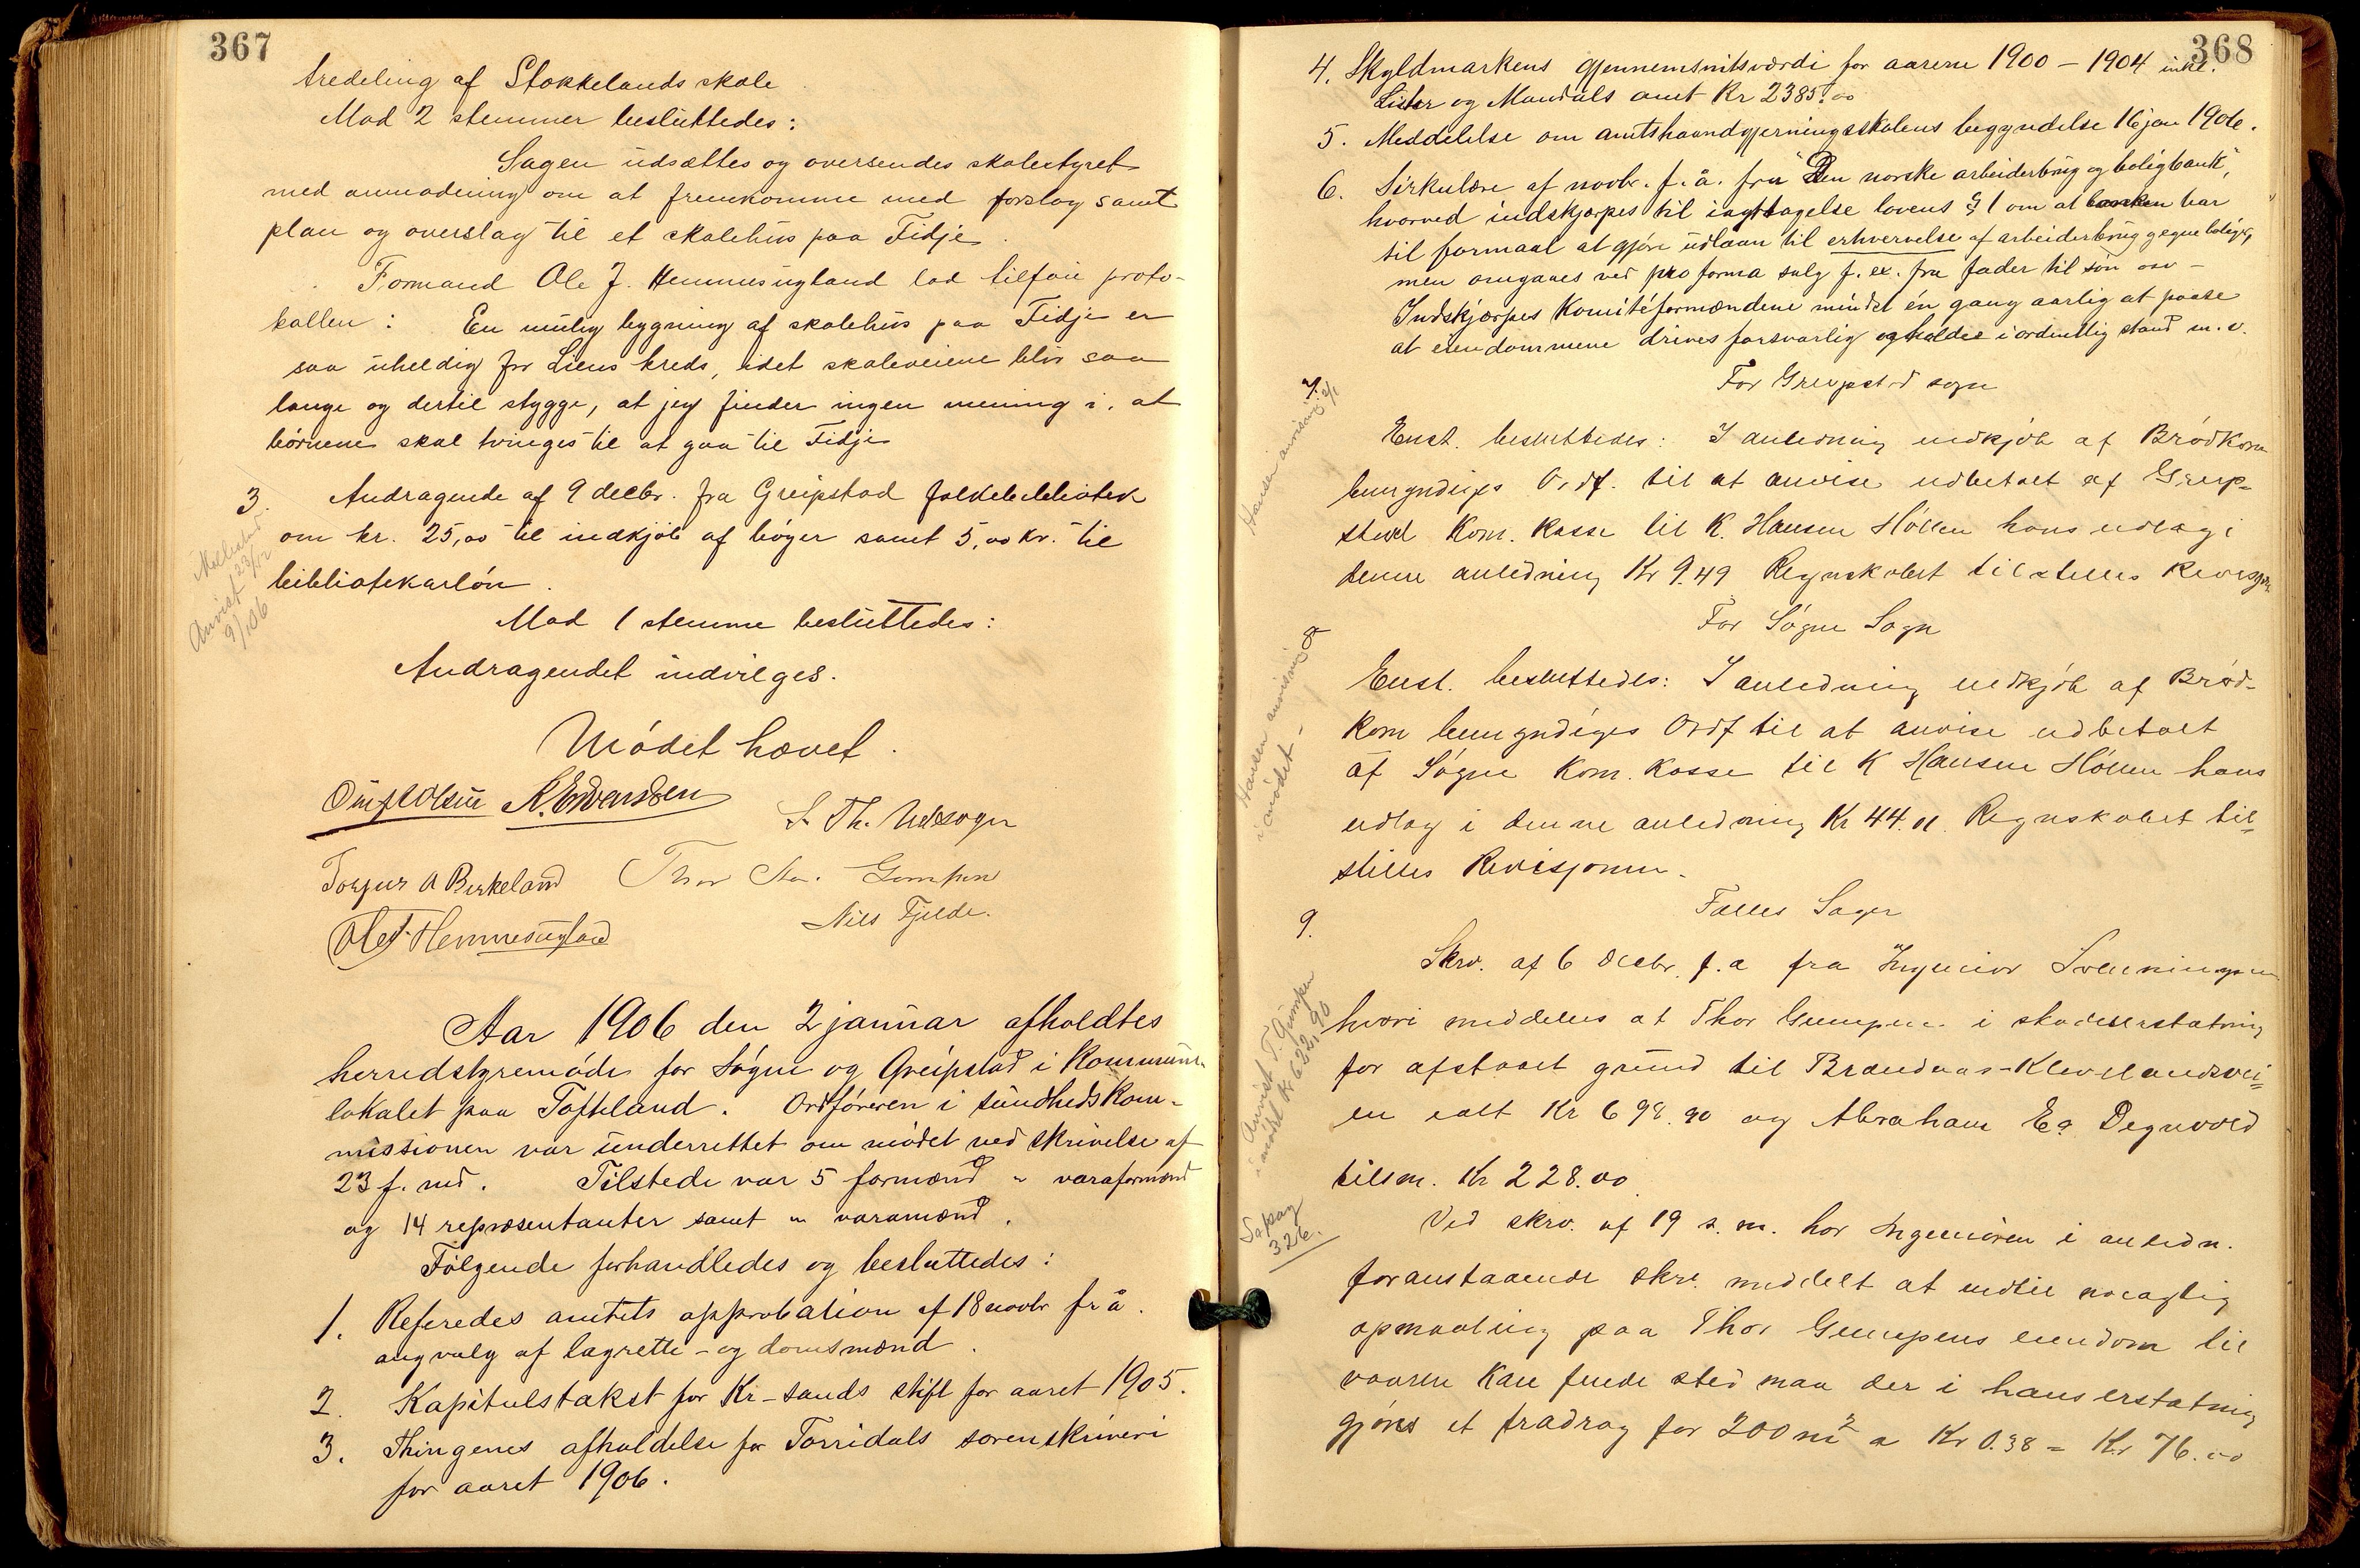 367
tredeling af Stokkelands skole
Mod 2 stemmer besluttedes:
Sagen udsættes og oversendes skolestyret
med anmodning om at fremkomme med forslag samt
plan og overslag til et skolehus paa Fidje.
Formand Ole J. Hemmesugland lod tilføie proto-
kollen: En mulig bygning af skolehus paa Fidje er
saa uheldig for Liens kreds, idet skoleveiene blir saa
lange og dertil stygge, at jeg finder ingen mening i, at
børnene skal tvinges til at gaa til Fidje
3. Andragende af 9 decbr. fra Greipstad folkebibliotek
om kr. 25,00 til indkjøb af bøger samt 5,00 kr. til
bibliotekarløn.
Anvist 23/12
9/1 06
Mod 1 stemme besluttedes:
Andragendet indvilges.
Mødet hævet.
K. Edvardsen
S. Th. Udsogn
Torjus A Birkeland Thor Aa. Gumpen
Nils Fjelde.
Ole J. Hemmesugland
Aar 1906 den 2 januar afholdtes
herredstyremøde for Søgne og Greipstad i Kommune-
lokalet paa Tofteland. Ordføreren i sundhedskom-
missionen var underrettet om mødet ved skrivelse af
23 f. md. Tilstede var 5 formænd " varaformænd
og 14 repræsentanter samt " varamænd.
Følgende forhandledes og besluttedes:
1. Referedes amtets approbation af 18 novbr f. å.
ang valg af lagrette- og domsmænd.
2. Kapitulstakst for Kr-sands stift for aaret 1905.
3. Thingenes afholdelse for Torridals sorenskriveri
for aaret 1906.
368
4. Skyldmarkens gjennemsnitsværdi for aarene 1900 - 1904 inkl.
Lister og Mandals amt Kr 2385.00
5. Meddelelse om amtshaandgjerningsskolens begyndelse 16 jan 1906.
6. Sirkulære af novbr. f. å. fra "Den norske arbeiderbrug og boligbank",
hvorved indskjærpes til iagttagelse lovens § 1 om at banken har
til formaal at gjøre udlaan til erhvervelse af arbeiderbrug og egne boliger,
men omgaaes ved pro forma salg f. ex. fra fader til søn osv -
Indskjærpes Komitéformændene mindst én gang aarlig at paase
at eiendommene drives forsvarlig og holdes i ordentlig stand m. v.
For Greipstad sogn
7.
Hansen anvisning 2/1
Enst. besluttedes: I anledning indkjøb af Brødkorn
bemyndiges Ordf. til at anvise udbetalt af Greip-
stad Kom. Kasse til K. Hansen Høllen hans udlæg i
denne anledning Kr 9.49 Regnskabet tilstilles Revisjonen
For Søgne Sogn
8
Hansen anvisning
i mødet -
Enst. besluttedes: I anledning indkjøb af Brød-
korn bemyndiges Ordf til at anvise udbetalt
af Søgne Kom. Kasse til K Hansen Høllen hans
udlæg i denne anledning Kr 44.01 Regnskabet til-
stilles Revisjonen.
Fælles Sager
9.
Skrv. af 6 decbr. f. a fra Ingeniør Svenningsen
hvori meddeles at Thor Gumpen i skadeserstatning
for afstaaet grund til Brandnas-Klevelandsvei-
en ialt Kr 698.90 og Abraham Egs Degnvold
tilsm. Kr 228.00
Anvist T. Gumpen
i mødet Kr 622,90
Se pag
326.
Ved skrv. af 19 s. m. har Ingeniøren i anledn.
foranstaaende skr. meddelt at indtil nøiagtig
opmaaling paa Thor Gumpens eiendom til
vaaren kan finde sted maa der i hans erstatning
gjøres et fradrag for 200 m² a Kr 0.38 = Kr 76.00